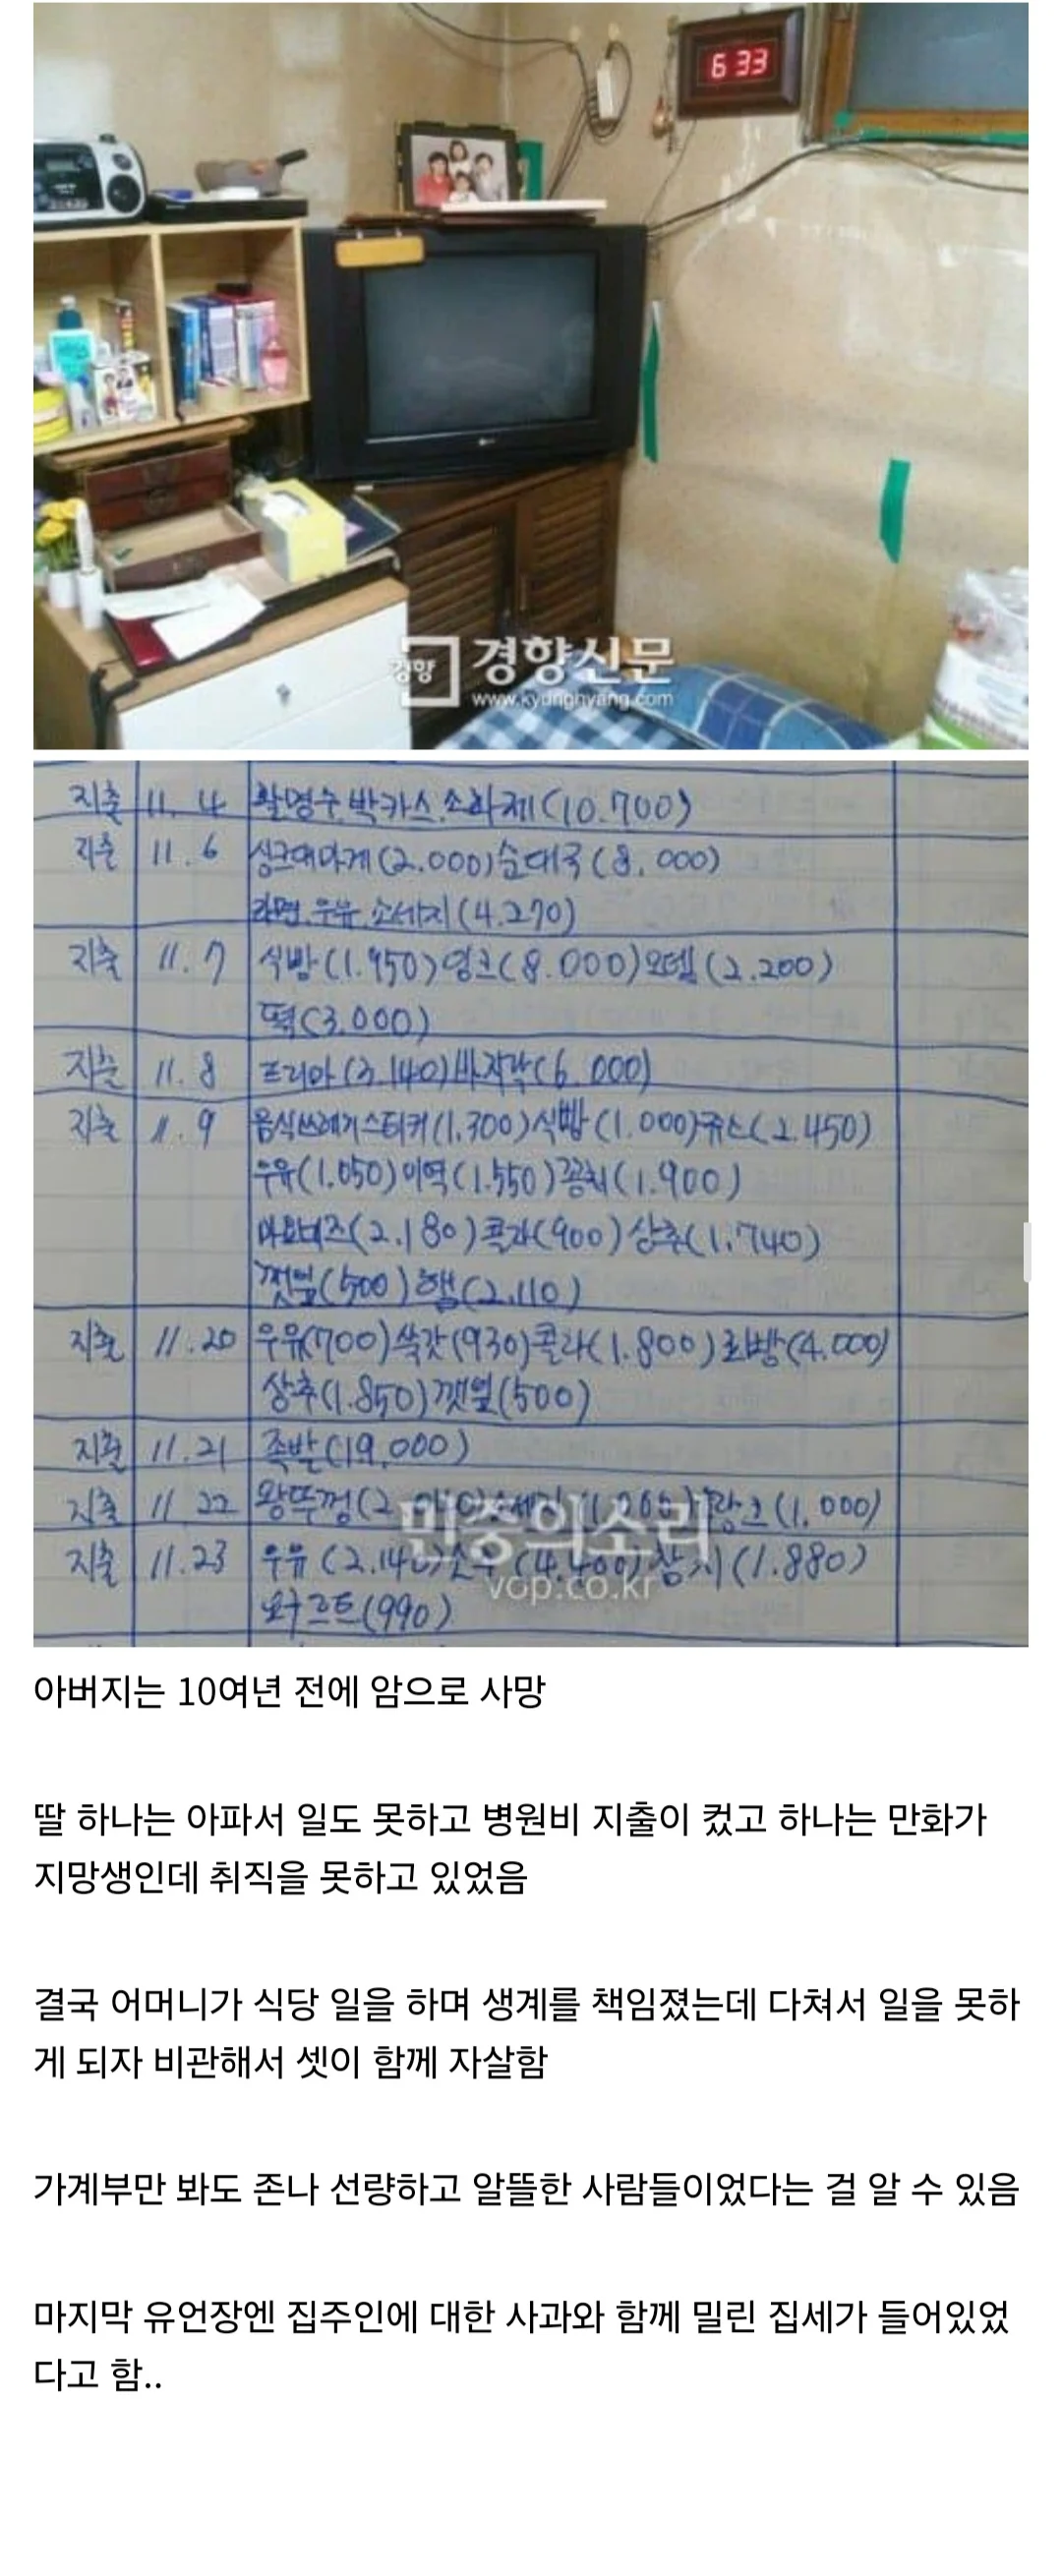 6 33
경향
경향신문
www.kyunghyang.com
지출 11. 4 활명수.박카스.소화제(10.700)
지출 11. 6 싱크대마개(2.000)순대국(8.000)
라면.우유.소세지(4.270)
지출 11. 7 식빵(1.950)잉크(8.000)오뎅(2.200)
떡(3.000)
지출 11. 8 프리마(3.140)바지락(6.000)
지출 11. 9 음식쓰레기스티커(1.300)식빵(1.000)쥬스(2.450)
우유(1.050)미역(1.550)꽁치(1.900)
마요네즈(2.180)콜라(900)상추(1.740)
깻잎(500)햄(2.110)
지출 11.20 우유(700)쑥갓(930)콜라(1.800)찐빵(4.000)
상추(1.850)깻잎(500)
지출 11.21 족발(19,000)
지출 11.22 왕뚜껑(2. (1.000)
지출 11.23 우유(2.140) 참치(1.880)
요구르트(990)
민중의소리
vop.co.kr
아버지는 10여년 전에 암으로 사망
딸 하나는 아파서 일도 못하고 병원비 지출이 컸고 하나는 만화가
지망생인데 취직을 못하고 있었음
결국 어머니가 식당 일을 하며 생계를 책임졌는데 다쳐서 일을 못하
게 되자 비관해서 셋이 함께 자살함
가계부만 봐도 존나 선량하고 알뜰한 사람들이었다는 걸 알 수 있음
마지막 유언장엔 집주인에 대한 사과와 함께 밀린 집세가 들어있었
다고 함..